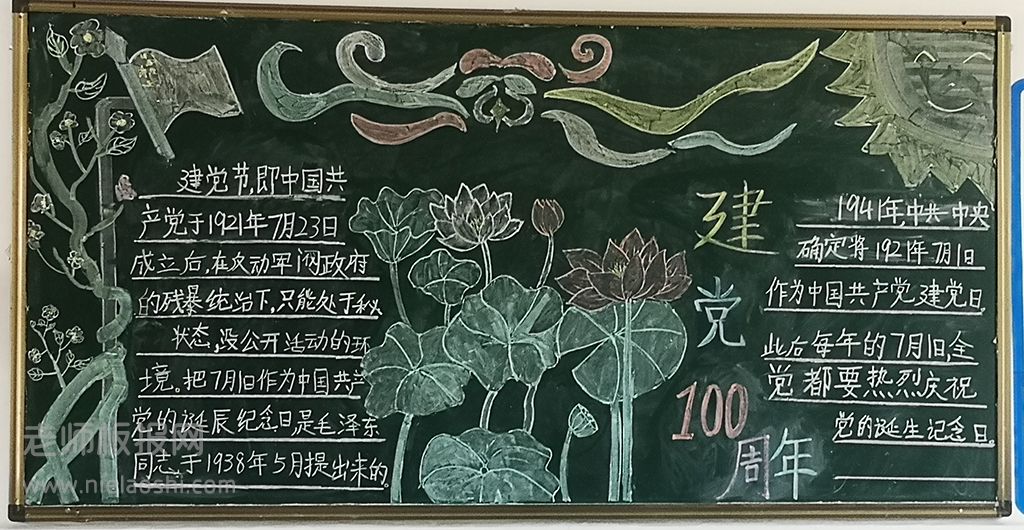 建党节,即中国共
产党于1921年7月23日
成立后,在反动军阀政府
的残暴统治下,只能处于秘
状态,没公开活动的环
境。把7月1日作为中国共产
党的诞辰纪念日,是毛泽东
同志,于1938年5月提出来的。
建
党
100
周年
1941年,中共中央
确定将1921年7月1日
作为中国共产党建党日,
此后每年的7月1日,全
党都要热烈庆祝
党的诞生记念日。
老师板报网
www.nielaoshi.com